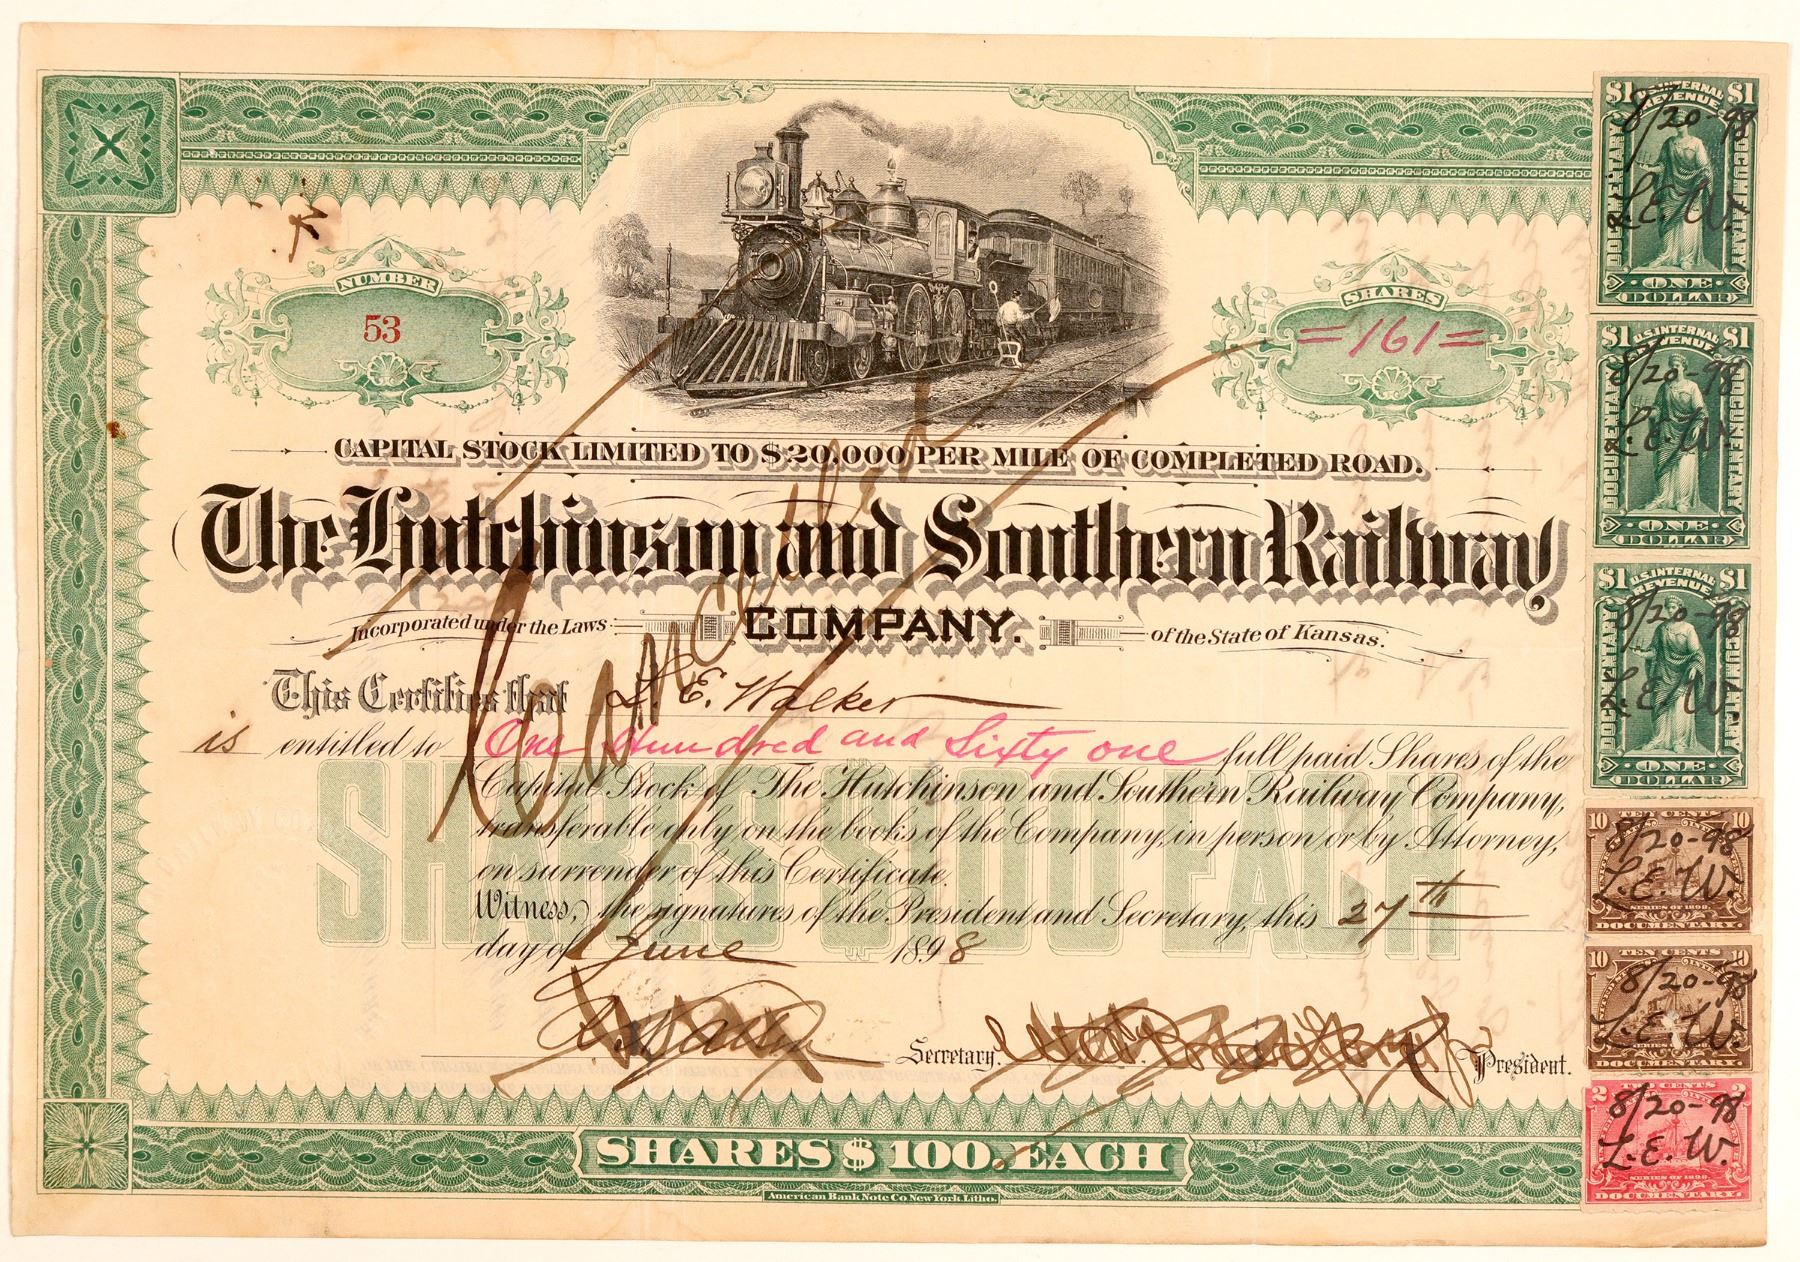 NUMBER
53
SHARES
=161=
CAPITAL STOCK LIMITED TO $20,000 PER MILE OF COMPLETED ROAD.
The Hutchinson and Southern Railway
COMPANY.
Incorporated under the Laws
of the State of Kansas.
Cancelled
This Certifies that L. E. Walker
is entitled to One Hundred and Sixty one full paid Shares of the
Capital Stock of The Hutchinson and Southern Railway Company,
transferable only on the books of the Company, in person or by Attorney,
on surrender of this Certificate.
Witness, the signatures of the President and Secretary, this 27th
day of June 1898
SHARES $100 EACH
Secretary.
President.
SHARES $100. EACH
American Bank Note Co New York. Litho.
$1 U.S. INTERNAL REVENUE $1
DOCUMENTARY
DOCUMENTARY
8/20-98
L.E.W.
ONE
DOLLAR
$1 U.S. INTERNAL REVENUE $1
DOCUMENTARY
DOCUMENTARY
8/20-98
L.E.W.
ONE
DOLLAR
$1 U.S. INTERNAL REVENUE $1
DOCUMENTARY
DOCUMENTARY
8/20-98
L.E.W.
ONE
DOLLAR
10 TEN CENTS 10
8/20-98
L.E.W.
SERIES OF 1898
DOCUMENTARY.
10 TEN CENTS 10
8/20-98
L.E.W.
DOCUMENTARY.
2 TWO CENTS 2
8/20-98
L.E.W.
SERIES OF 1898
DOCUMENTARY.